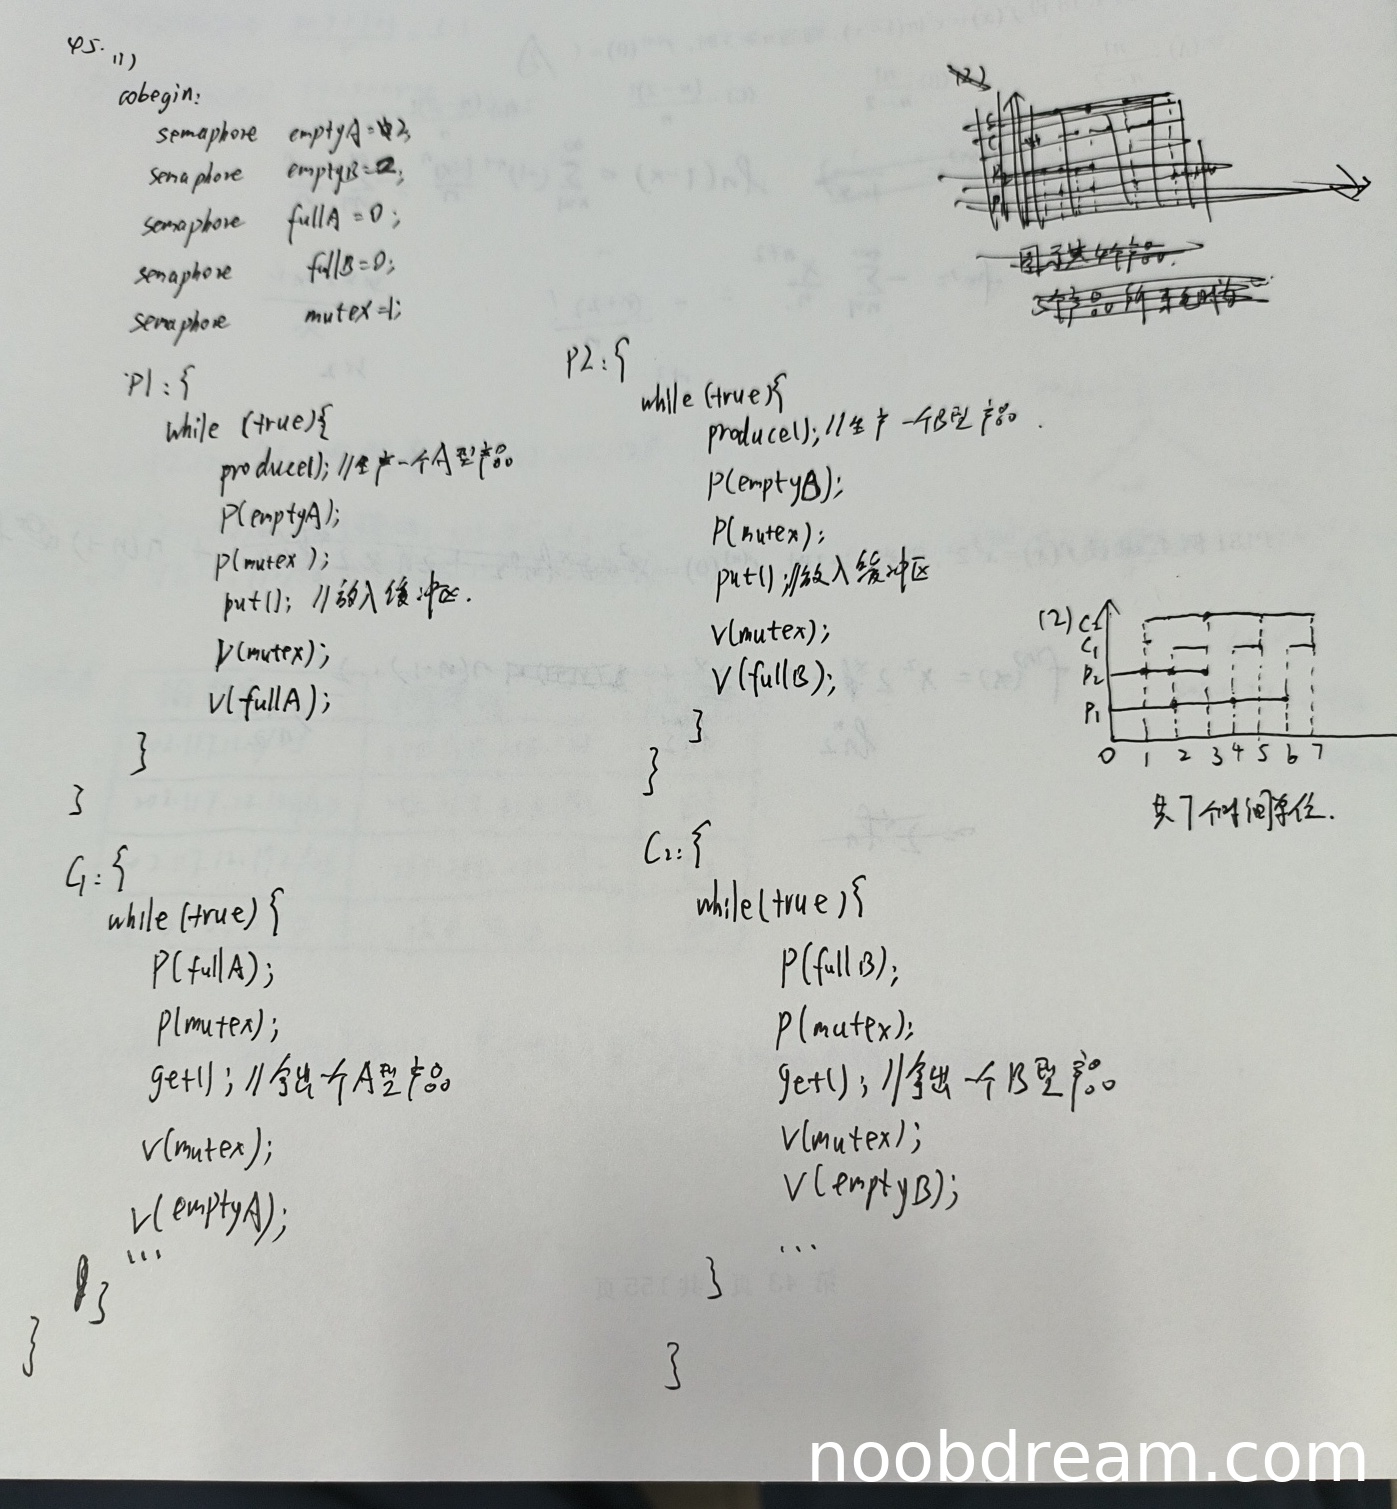 45. (1)
cobegin:
semaphore emptyA=2;
semaphore emptyB=2;
semaphore fullA=0;
semaphore fullB=0;
semaphore mutex=1;
P1:{
while (true){
produce(); //生产一个A型产品
P(emptyA);
P(mutex);
put(); //放入缓冲区.
V(mutex);
V(fullA);
}
}
P2:{
while (true){
produce(); //生产一个B型产品.
P(emptyB);
P(mutex);
put(); //放入缓冲区
V(mutex);
V(fullB);
}
}
C1:{
while (true) {
P(fullA);
P(mutex);
get(); //拿出一个A型产品
V(mutex);
V(emptyA);
...
}
}
C2:{
while(true){
P(fullB);
P(mutex);
get(); //拿出一个B型产品
V(mutex);
V(emptyB);
...
}
}
(2)
C2
C1
P2
P1
0 1 2 3 4 5 6 7
共7个时间单位.
noobdream.com